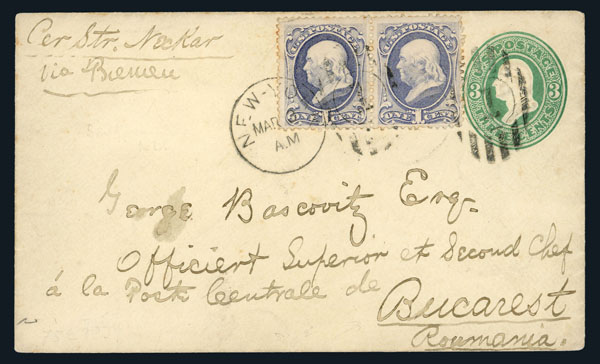 Per Str. Neckar
via Bremen
U.S. POSTAGE
U.S. POSTAGE
ONE CENT
1 CENT
U.S. POSTAGE
3 3
CENTS
NEW-YO
MAR
A.M
George Bascovitz Esq.
Officiert Superior et Second Chef
á la Poste Centrale de
Bucarest
Roumania.